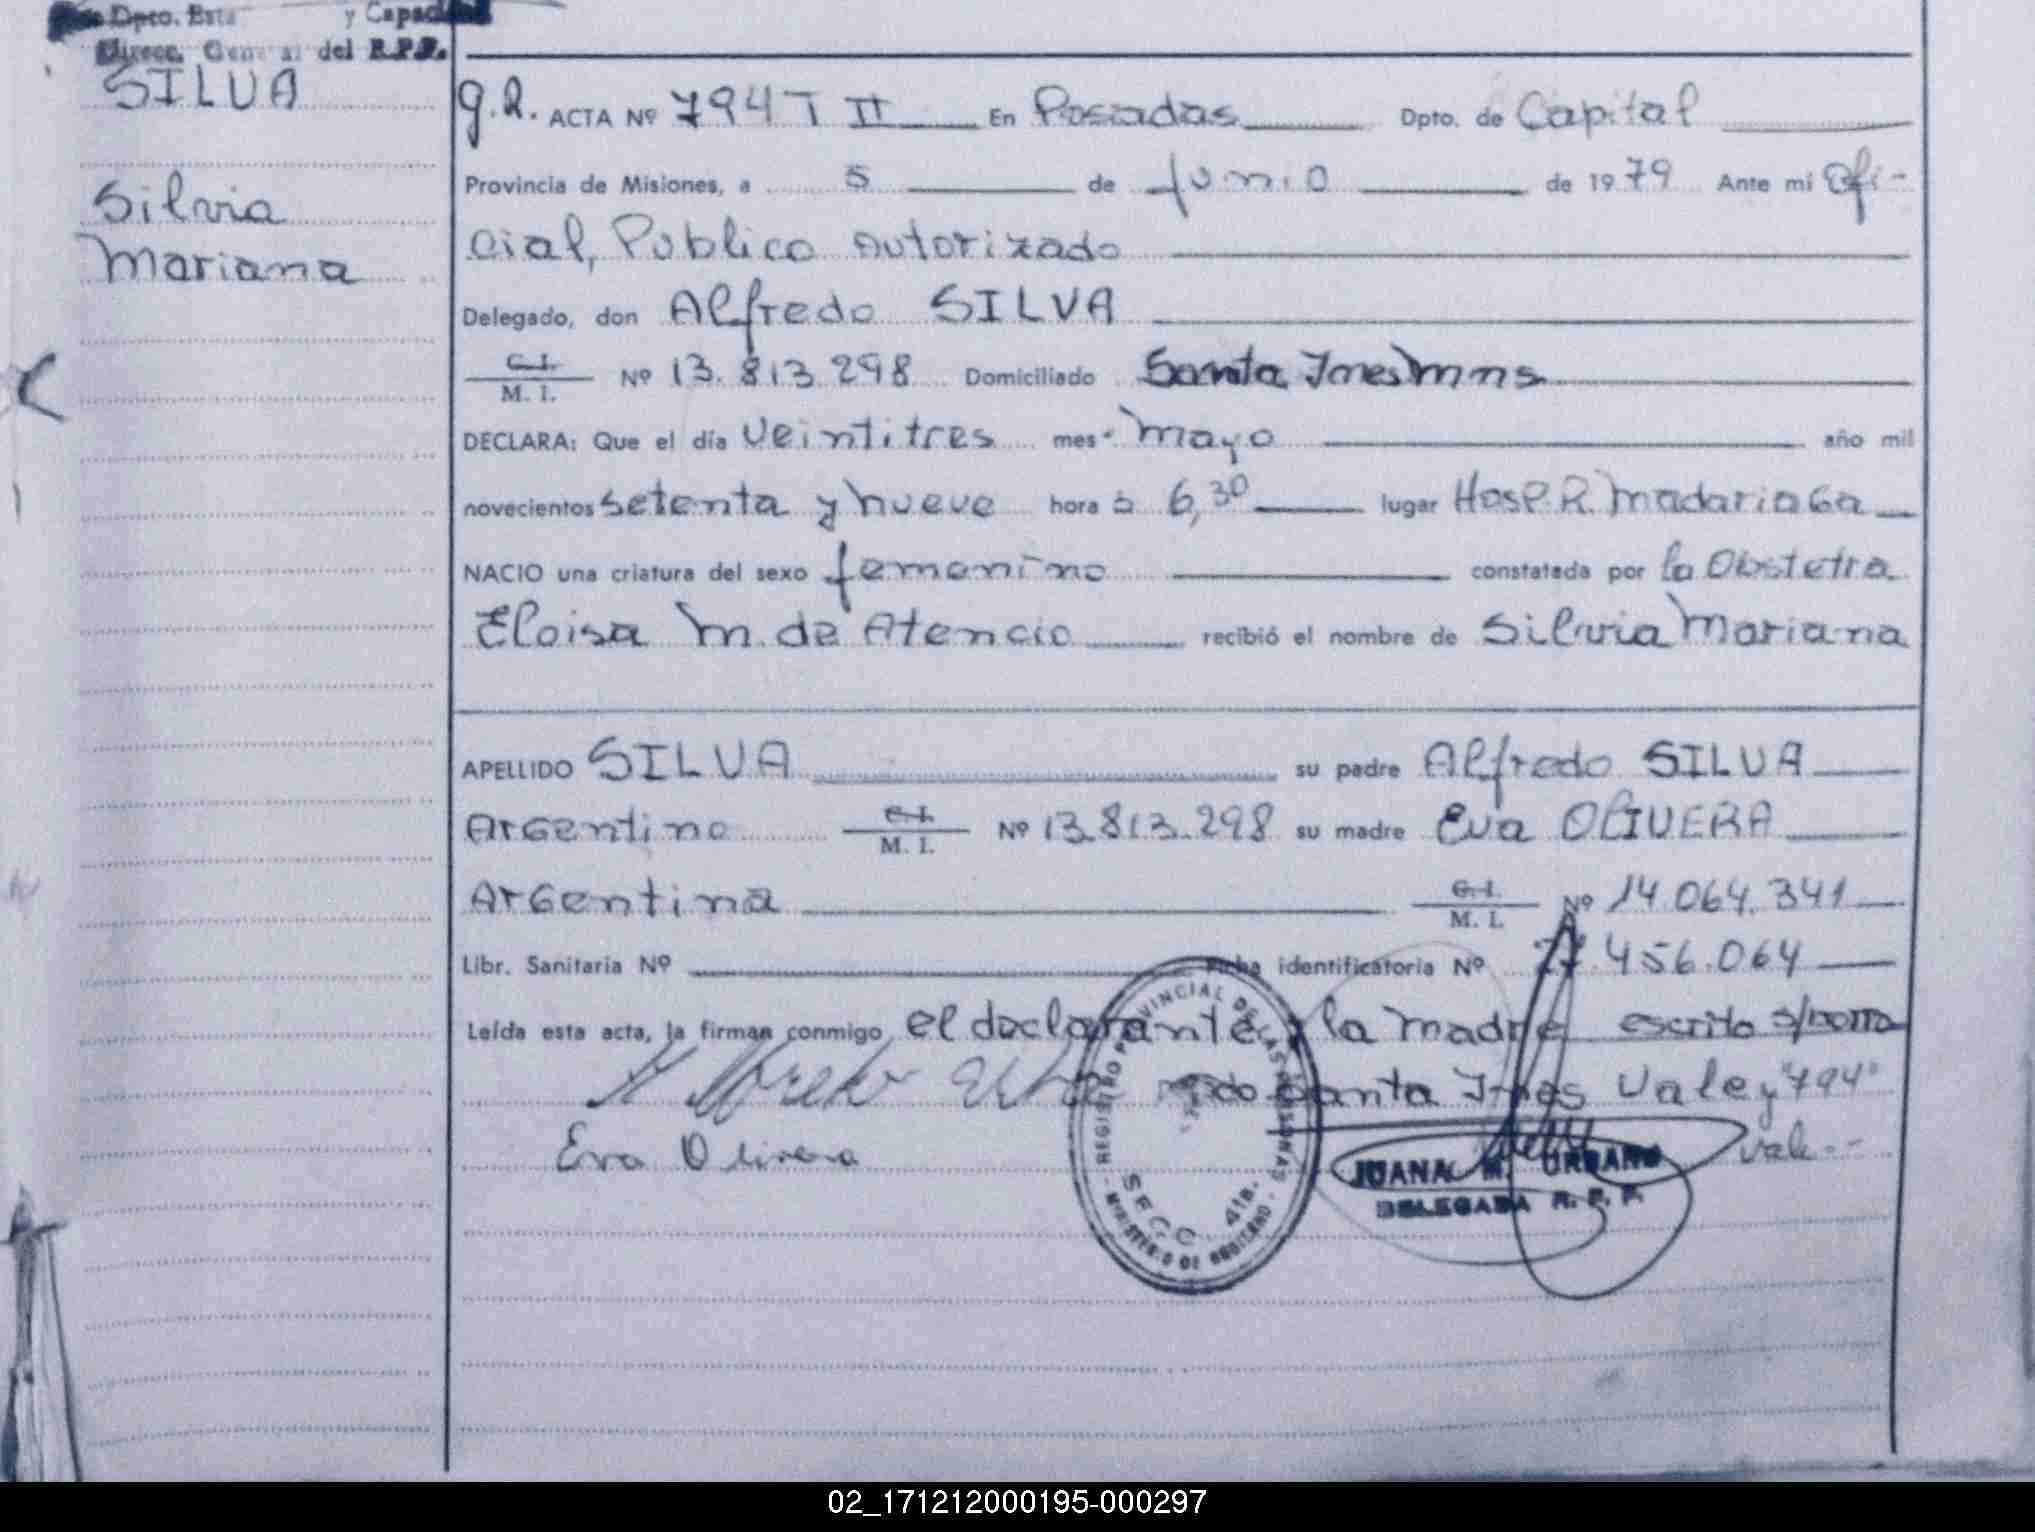 Dpto. Esta y Capac
Direcc. General del R.P.P.
SILVA
Silvia
Mariana
G.R. ACTA Nº 794 T II En Posadas Dpto. de Capital
Provincia de Misiones, a 5 de Junio de 1979 Ante mi Ofi-
cial, Publico Autorizado
Delegado, don Alfredo SILVA
C. I.
M. I. Nº 13.813.298 Domiciliado Santa Ines Mns
DECLARA: Que el día veintitres mes Mayo año mil
novecientos setenta y nueve hora s 6,30 lugar Hosp. R. Madariaga
NACIO una criatura del sexo femenino constatada por la Obstetra
Eloisa M. de Atencio recibió el nombre de Silvia Mariana
APELLIDO SILVA su padre Alfredo SILVA
Argentino C. I. M. I. Nº 13.813.298 su madre Eva OLIVERA
Argentina C. I. M. I. Nº 14.064.341
Libr. Sanitaria Nº Ficha identificatoria Nº 27.456.064
Leída esta acta, la firman conmigo el declarante y la madre escrito s/borra
do Santa Ines Vale y "794"
Vale.--
Eva Olivera
REGISTRO PROVINCIAL DE LAS PERSONAS
SECC. 4ta.
MINISTERIO DE GOBIERNO
JUANA M. URBANO
DELEGADA R. P. P.
02_171212000195-000297